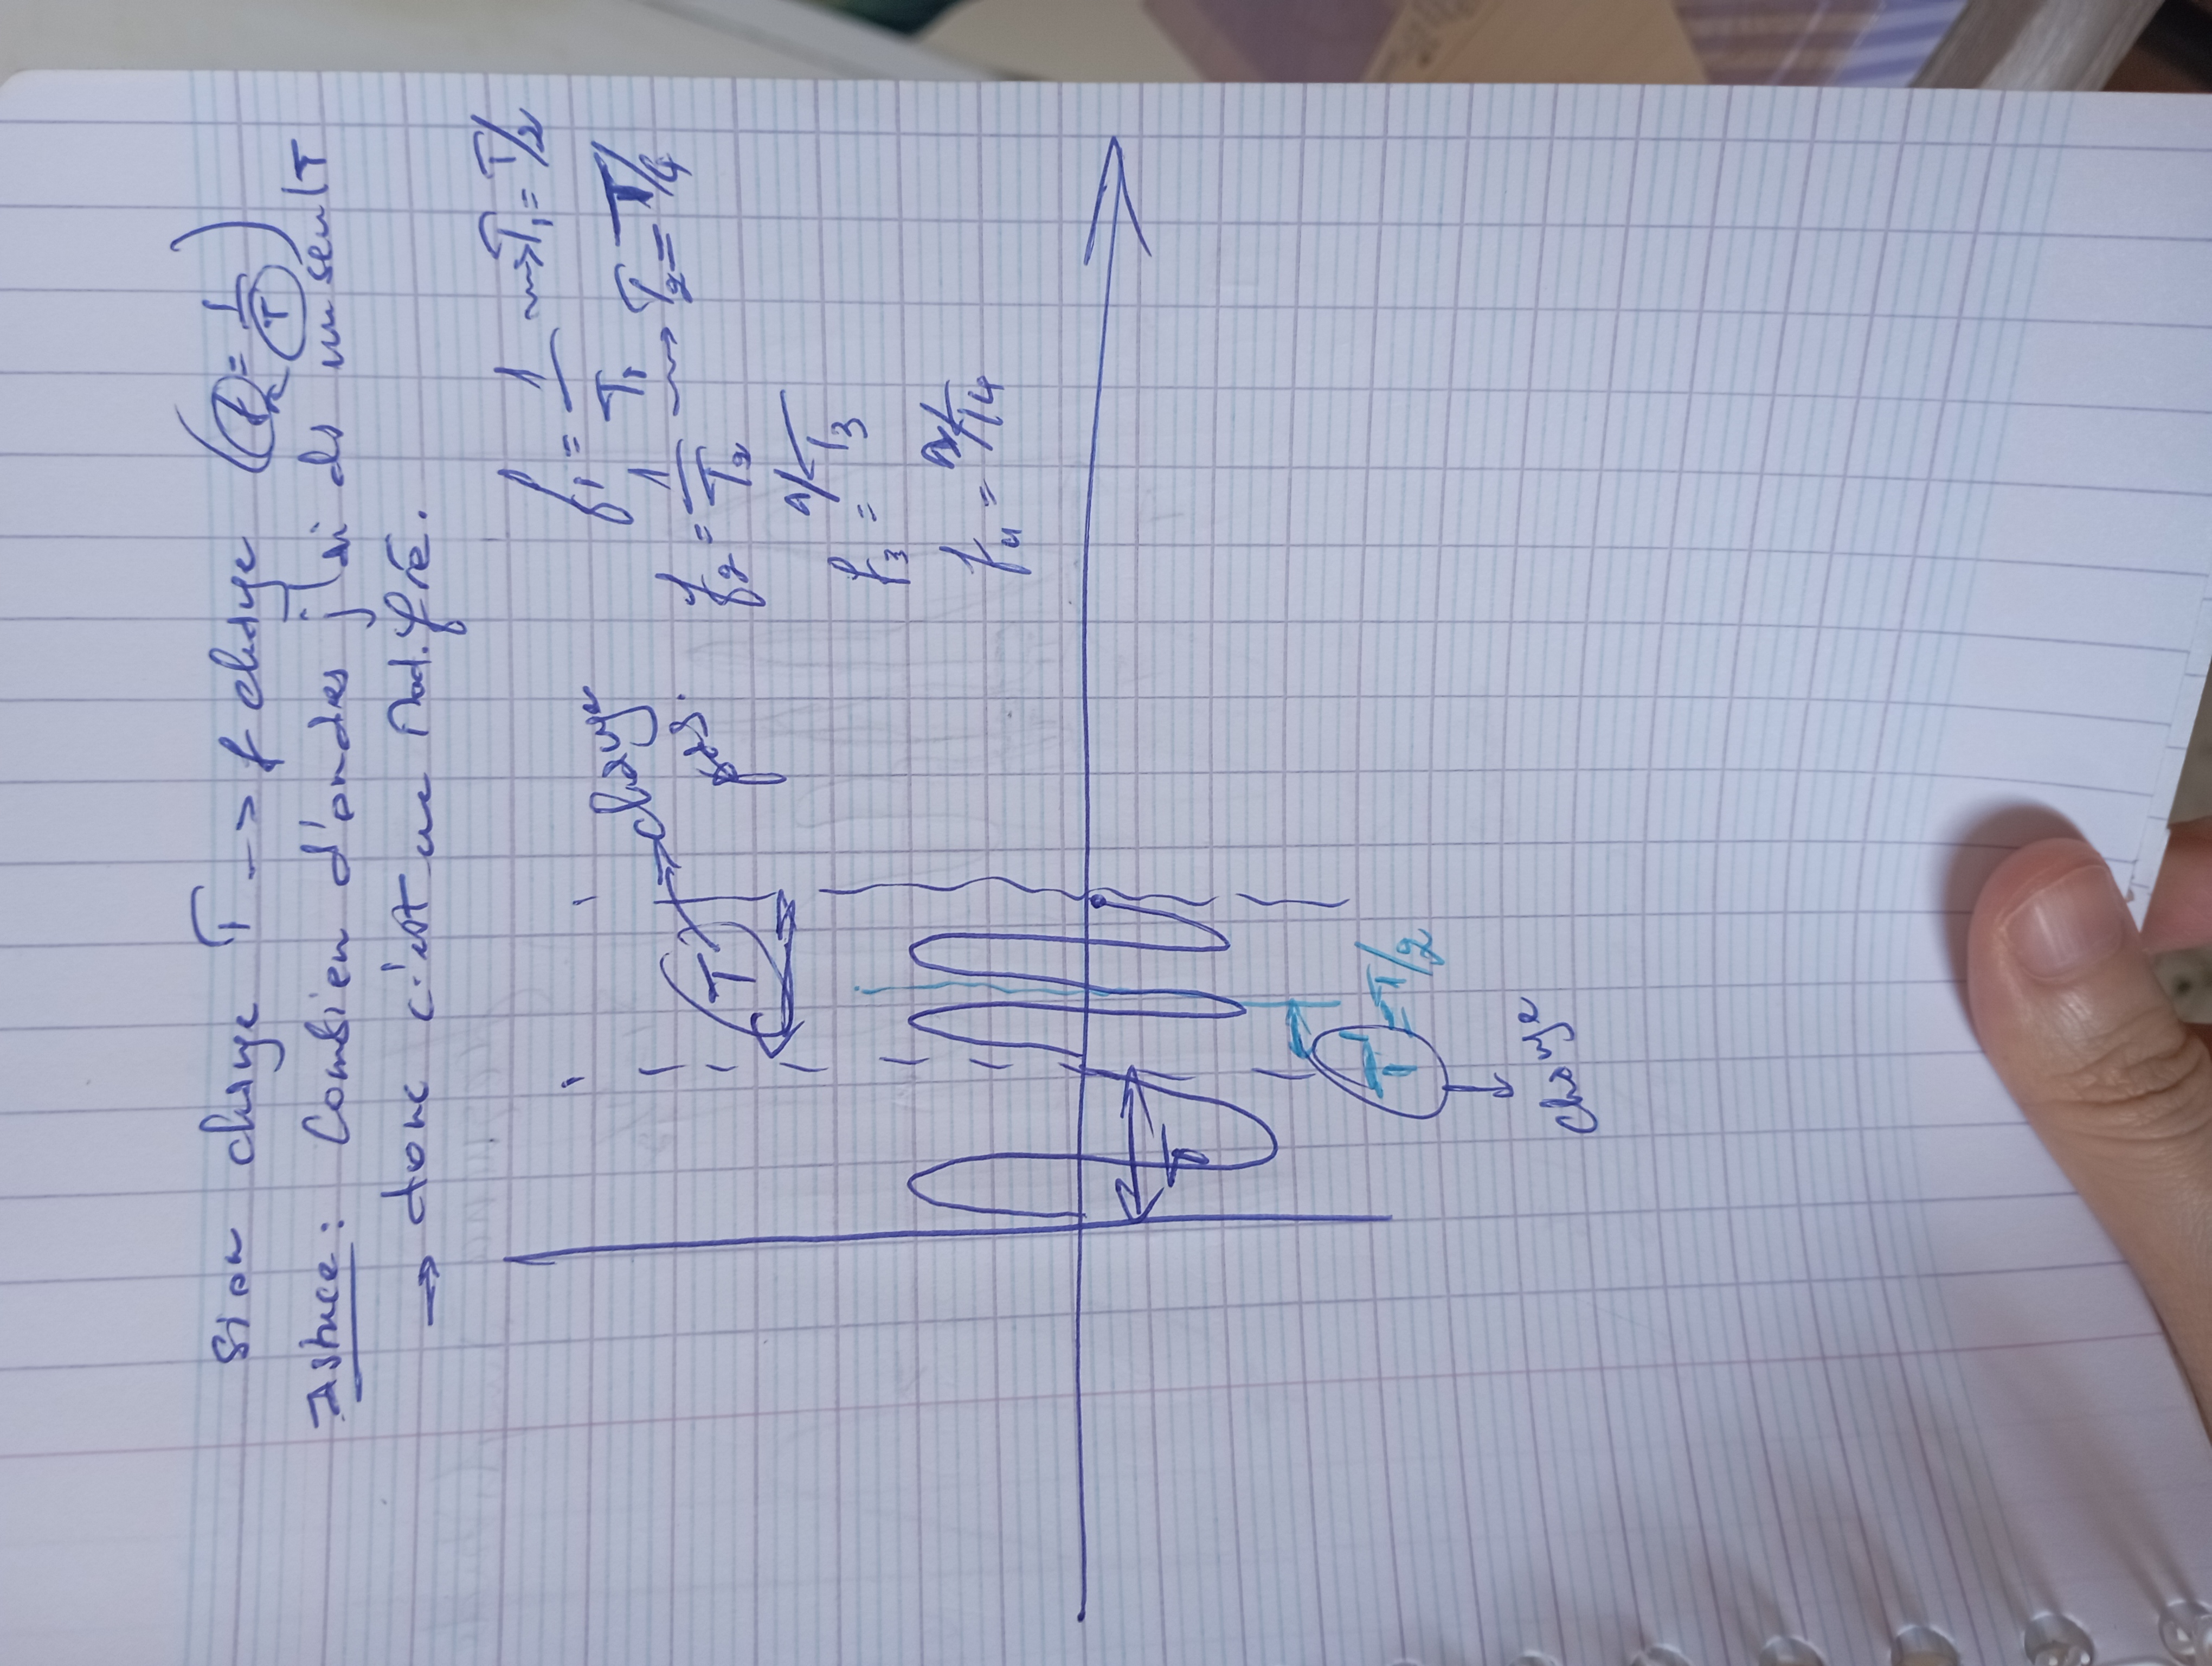 Si on change T --> f change (f = 1/T)
Astuce : Combien d'ondes j'ai ds un seul T
→ donc c'est une Mod. fré.
f1 = 1/T1 → T1 = T/2
f2 = 1/T2 → T2 = T/4
f3 = 1/T3
f4 = 1/T4
T → change pas.
T
T' = T/2
change